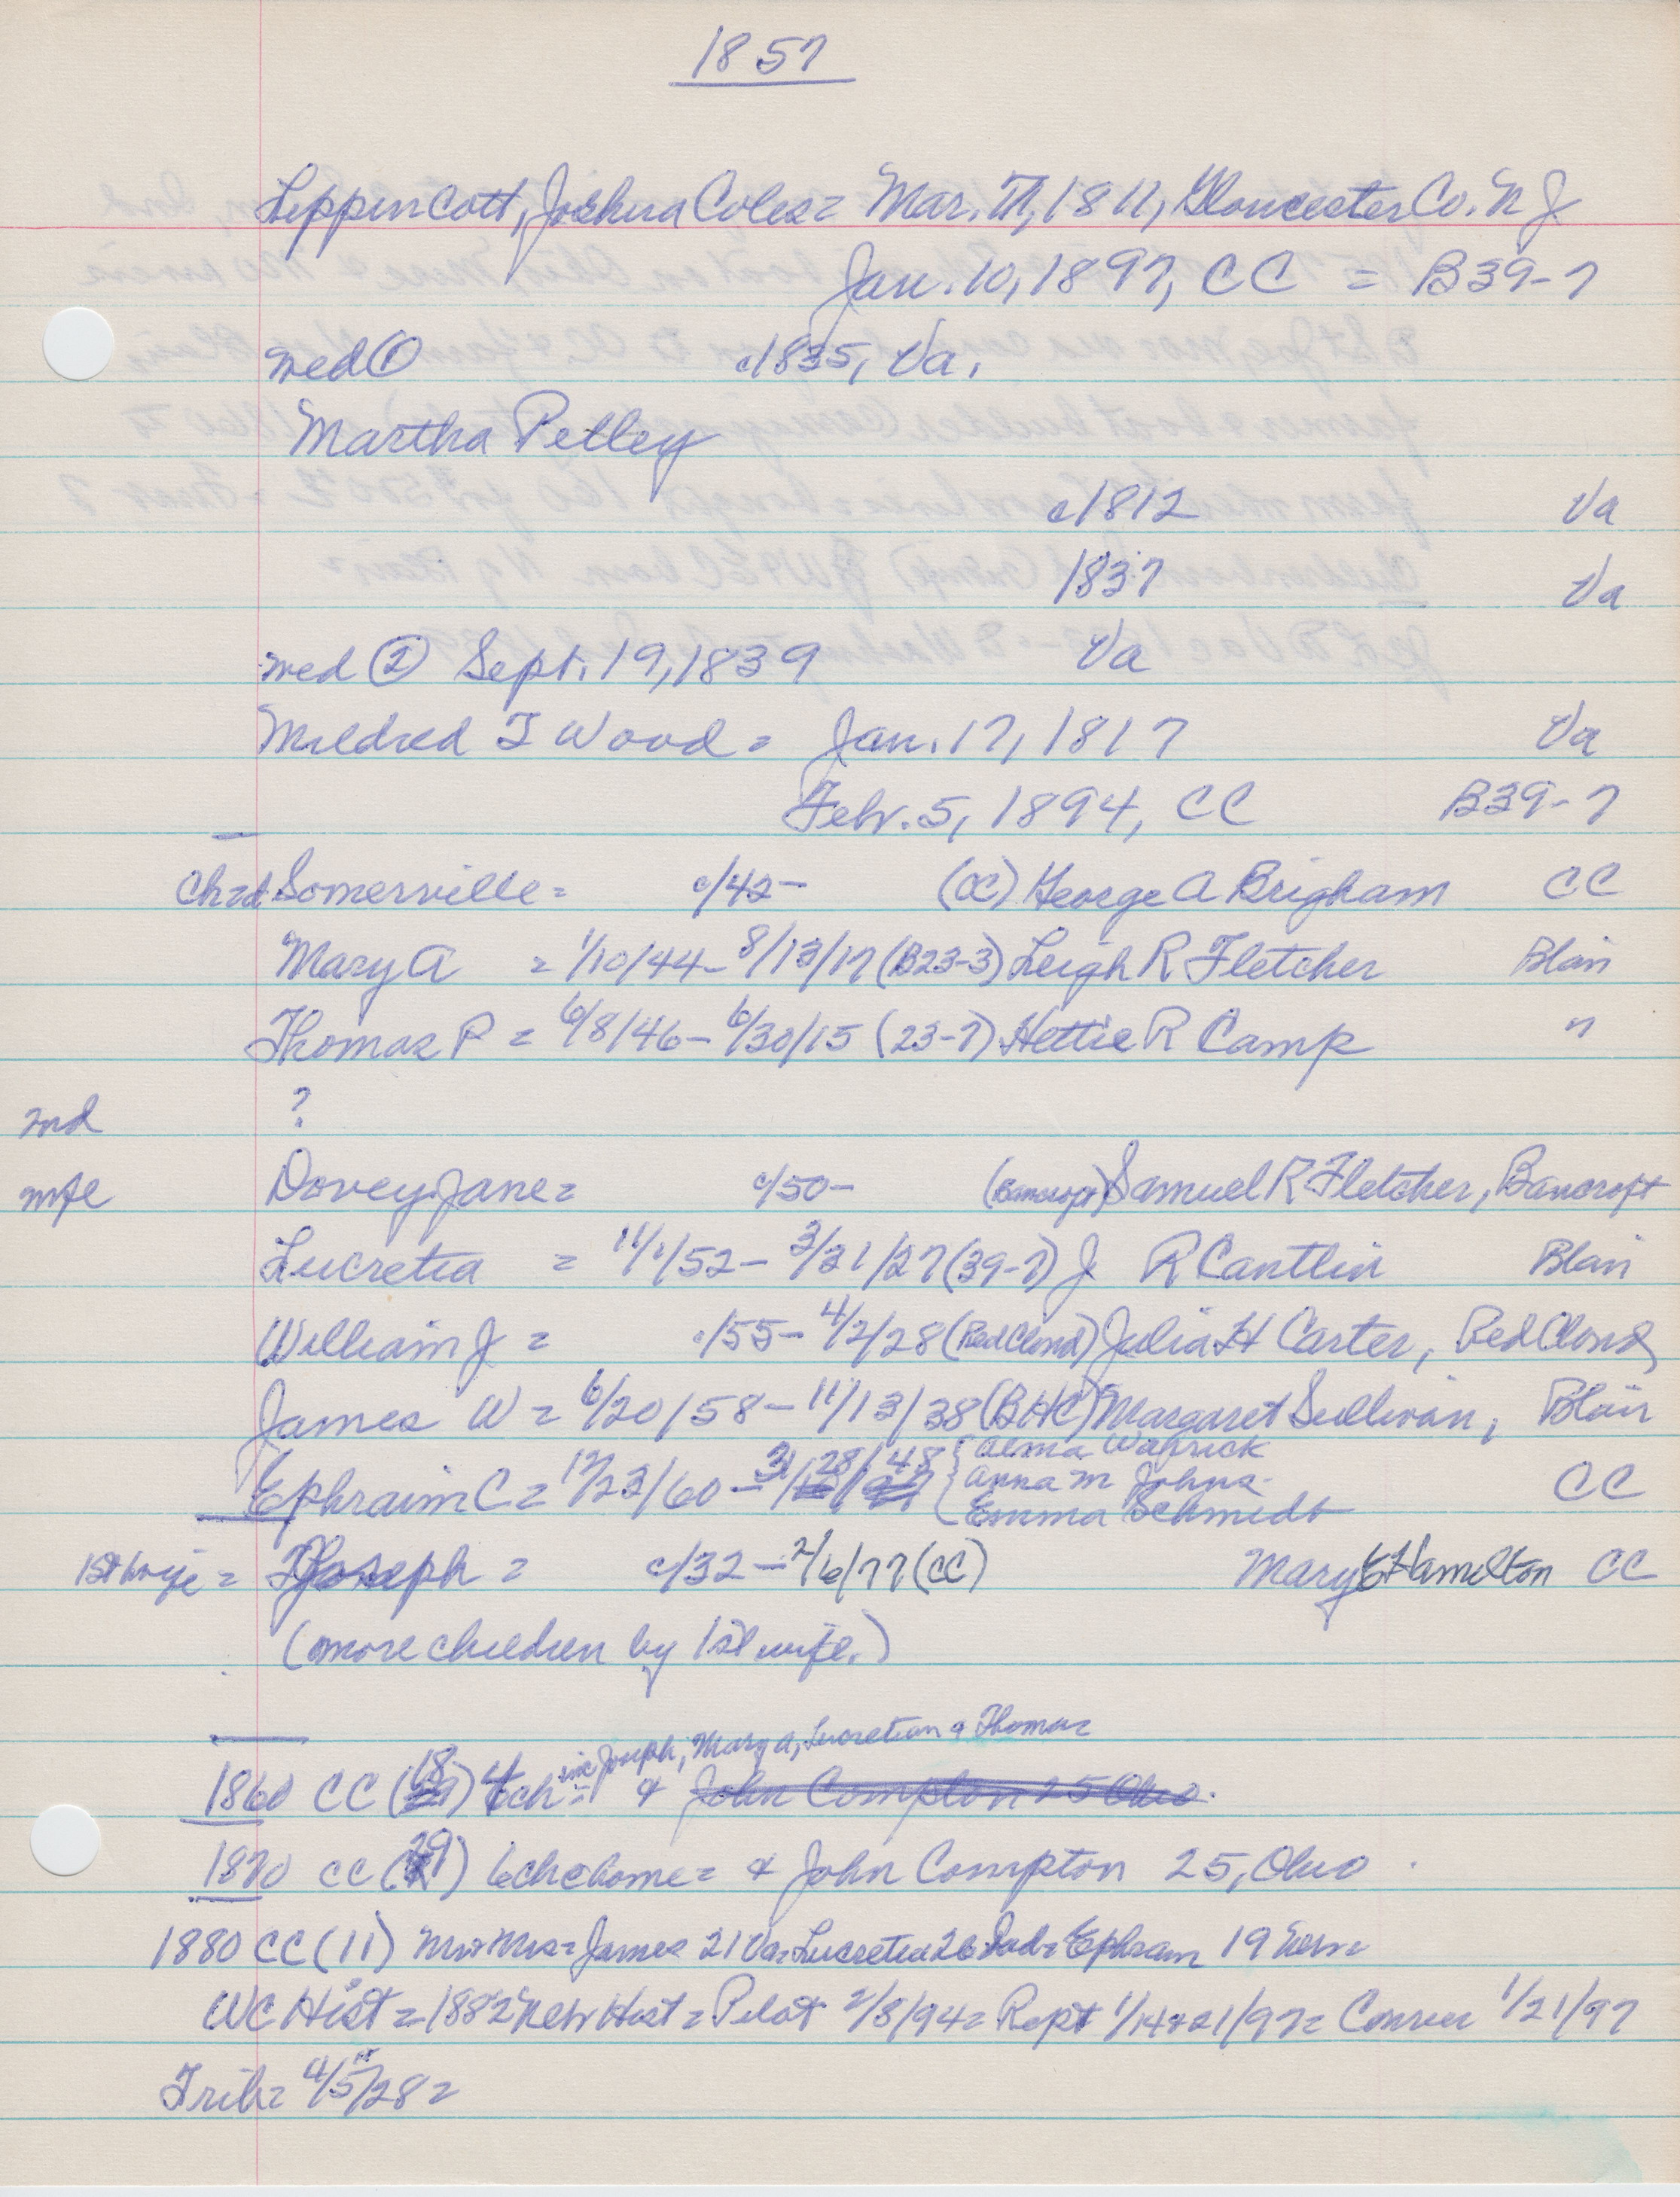 1857
Lippincott, Joshua Coles = Mar. 1811, Gloucester Co. N J
Jan. 10, 1897, CC = B39-7
med ① c1835, Va.
Martha Pelley
c1812 Va
1837 Va
med ② Sept. 19, 1839 Va
Mildred T Wood = Jan. 17, 1817 Va
Febr. 5, 1894, CC B39-7
Somerville = c/42- (OC) George A Brigham CC
Mary A = 1/10/44- 8/13/17 (B23-3) Leigh R Fletcher Blair
Thomas P = 6/8/46- 6/30/15 (23-7) Hettie R Camp "
2nd ?
wife Dovey Jane = c/50- (Bancroft) Samuel R Fletcher, Bancroft
Lucretia = 11/1/52- 3/21/27 (39-7) J R Cantlin Blair
William J = c/55- 4/2/28 (Red Cloud) Julia H Carter, Red Cloud
James W = 6/20/58- 11/13/38 (BHC) Margaret Sullivan, Blair
Ephraim C = 12/23/60- 3/28/48 { Alma Warrick
Anna M Johns
Emma Schmidt CC
1st wife = Joseph = c/32- 2/6/77 (CC) Mary E Hamilton CC
(more children by 1st wife.)
inc Joseph, Mary A, Lucretian & Thomas
1860 CC (18) 4 ch = & John Compton 25 Ohio.
1870 CC (29) 6 ch @ home = & John Compton 25, Ohio.
1880 CC (11) Mr & Mrs = James 21 Va = Lucretia 26 Ind = Ephram 19 Nebr =
WC Hist = 1882 Nebr Hist = Pilot 2/8/94 = Rept 1/14 & 21/97 = Courier 1/21/97
Trib = 4/5/28 =